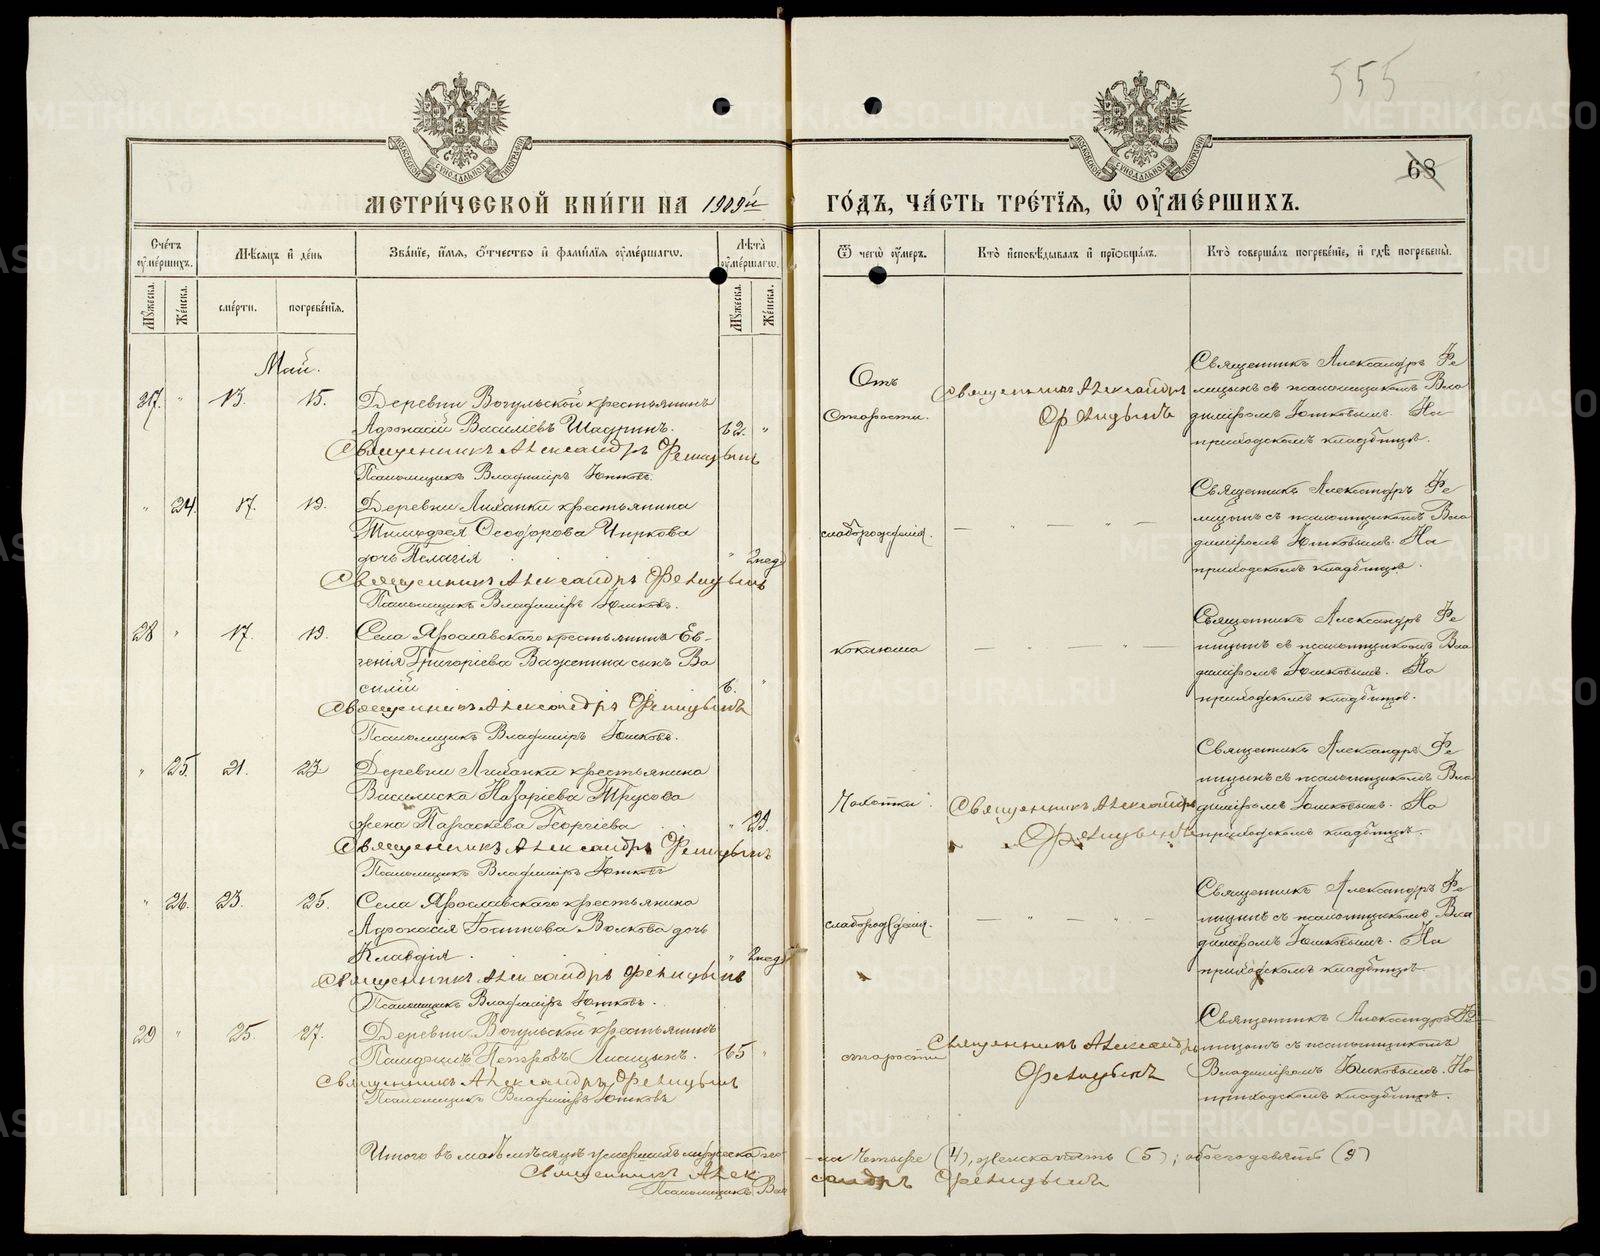 555
68
МЕТРИ́ЧЕСКОЙ КНИ́ГИ НА 1909й ГО́ДЪ, ЧА́СТЬ ТРЕ́ТЇѦ, Ѡ҆ ОУ҆МЕ́РШИХЪ.
Сче́тъ оу҆ме́ршихъ.
Мꙋ́жеска.
Же́нска.
Мѣ́сяцъ и҆ де́нь
сме́рти.
погребе́нїѧ.
Зва́нїе, и҆́мѧ, ѻ҆́тчество и҆ фами́лїѧ оу҆ме́ршагѡ.
Лѣ́та оу҆ме́ршагѡ.
Мꙋ́жеска.
Же́нска.
Ѿ чегѡ̀ оу҆́меръ.
Кто̀ и҆сповѣ́дывалъ и҆ прїѻбща́лъ.
Кто̀ соверша́лъ погребе́нїе, и҆ гдѣ̀ погребены̀.
Май.
27. " 13. 15.
Деревни Вогульской крестьянинъ
Василіевъ Шадринъ. 62. "
Священникъ Александръ Фелицынъ
Псаломщикъ Владиміръ Юшковъ.
Отъ
старости.
Священникъ Александръ
Фелицынъ
Священникъ Александръ Фе
лицынъ съ псаломщикомъ Вла
диміромъ Юшковымъ. На
приходскомъ кладбищѣ.
" 24. 17. 19.
Деревни крестьянина
Тимофея Ѳеодорова Чиркова
дочь Пелагія " 2 нед
Священникъ Александръ Фелицынъ
Псаломщикъ Владиміръ Юшковъ.
слаборожденія.
— " — " —
Священникъ Александръ Фе
лицынъ съ псаломщикомъ Вла
диміромъ Юшковымъ. На
приходскомъ кладбищѣ.
28 " 17. 19.
Села Ярославскаго крестьянина Ев-
генія Григоріева Важенина сынъ Ва
силій 6. "
Священникъ Александръ Фелицынъ
Псаломщикъ Владиміръ Юшковъ.
коклюша
— " — " —
Священникъ Александръ Фе
лицынъ съ псаломщикомъ Вла
диміромъ Юшковымъ. На
приходскомъ кладбищѣ.
" 25. 21. 23
Деревни крестьянина
Василиска Назаріева Трусова
жена Параскева Георгіева " 29.
Священникъ Александръ Фелицынъ
Псаломщикъ Владиміръ Юшковъ
Чахотки.
Священникъ Александръ
Фелицынъ
Священникъ Александръ Фе
лицынъ съ псаломщикомъ Вла
диміромъ Юшковымъ. На
приходскомъ кладбищѣ.
" 26. 23. 25.
Села Ярославскаго крестьянина
Волкова дочь
Клавдія. " 2 нед
Священникъ Александръ Фелицынъ
Псаломщикъ Владиміръ Юшковъ.
слаборожденія.
— " — " —
Священникъ Александръ Фе
лицынъ съ псаломщикомъ Вла
диміромъ Юшковымъ. На
приходскомъ кладбищѣ
29 " 25. 27.
Деревни Вогульской крестьянинъ
Петровъ 65 "
Священникъ Александръ Фелицынъ
Псаломщикъ Владиміръ Юшковъ
старости
Священникъ Александръ
Фелицынъ
Священникъ Александръ Фе
лицынъ съ псаломщикомъ
Владиміромъ Юшковымъ. На
приходскомъ кладбищѣ.
Итого въ маѣ мѣсяцѣ умершихъ мужеска по-
ла четыре (4), женска пять (5); обоего девять (9)
Священникъ Александръ Фелицынъ
Псаломщикъ Вла
METRIKI.GASO-URAL.RU